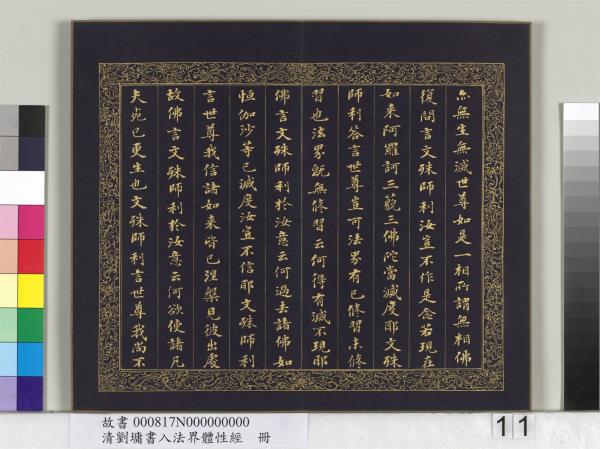 亦無生無滅世尊如是一相所謂無相佛
復問言文殊師利汝豈不作是念若現在
如来阿羅訶三藐三佛陀當滅度耶文殊
師利答言世尊豈可法界有已修習未修
習也法界既無修習云何得有滅不現耶
佛言文殊師利於汝意云何過去諸佛如
恒伽沙等已滅度汝豈不信耶文殊師利
言世尊我信諸如来皆已涅槃見彼出處
故佛言文殊師利於汝意云何欲使諸凡
夫死已更生也文殊師利言世尊我尚不
故書 000817N000000000
清劉墉書入法界體性經 冊
11